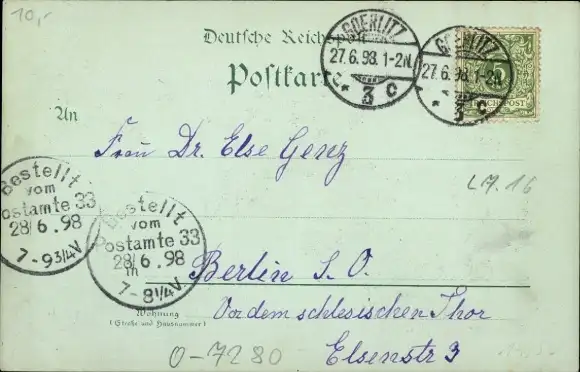 10,-
Deutsche Reichspost
Postkarte
GOERLITZ
27.6.98.1-2N.
* 3 c
GOERLITZ
27.6.98.1-2N.
* 3 c
5
REICHSPOST
An
Frau Dr. Else Genz
Bestellt
vom
Postamte 33
28/6.98
7-93/4V
Bestellt
vom
Postamte 33
28/6.98
7-81/4V
in
Berlin S. O.
Wohnung
(Straße und Hausnummer)
Vor dem schlesischen Thor
Elsenstr 3
O-7280